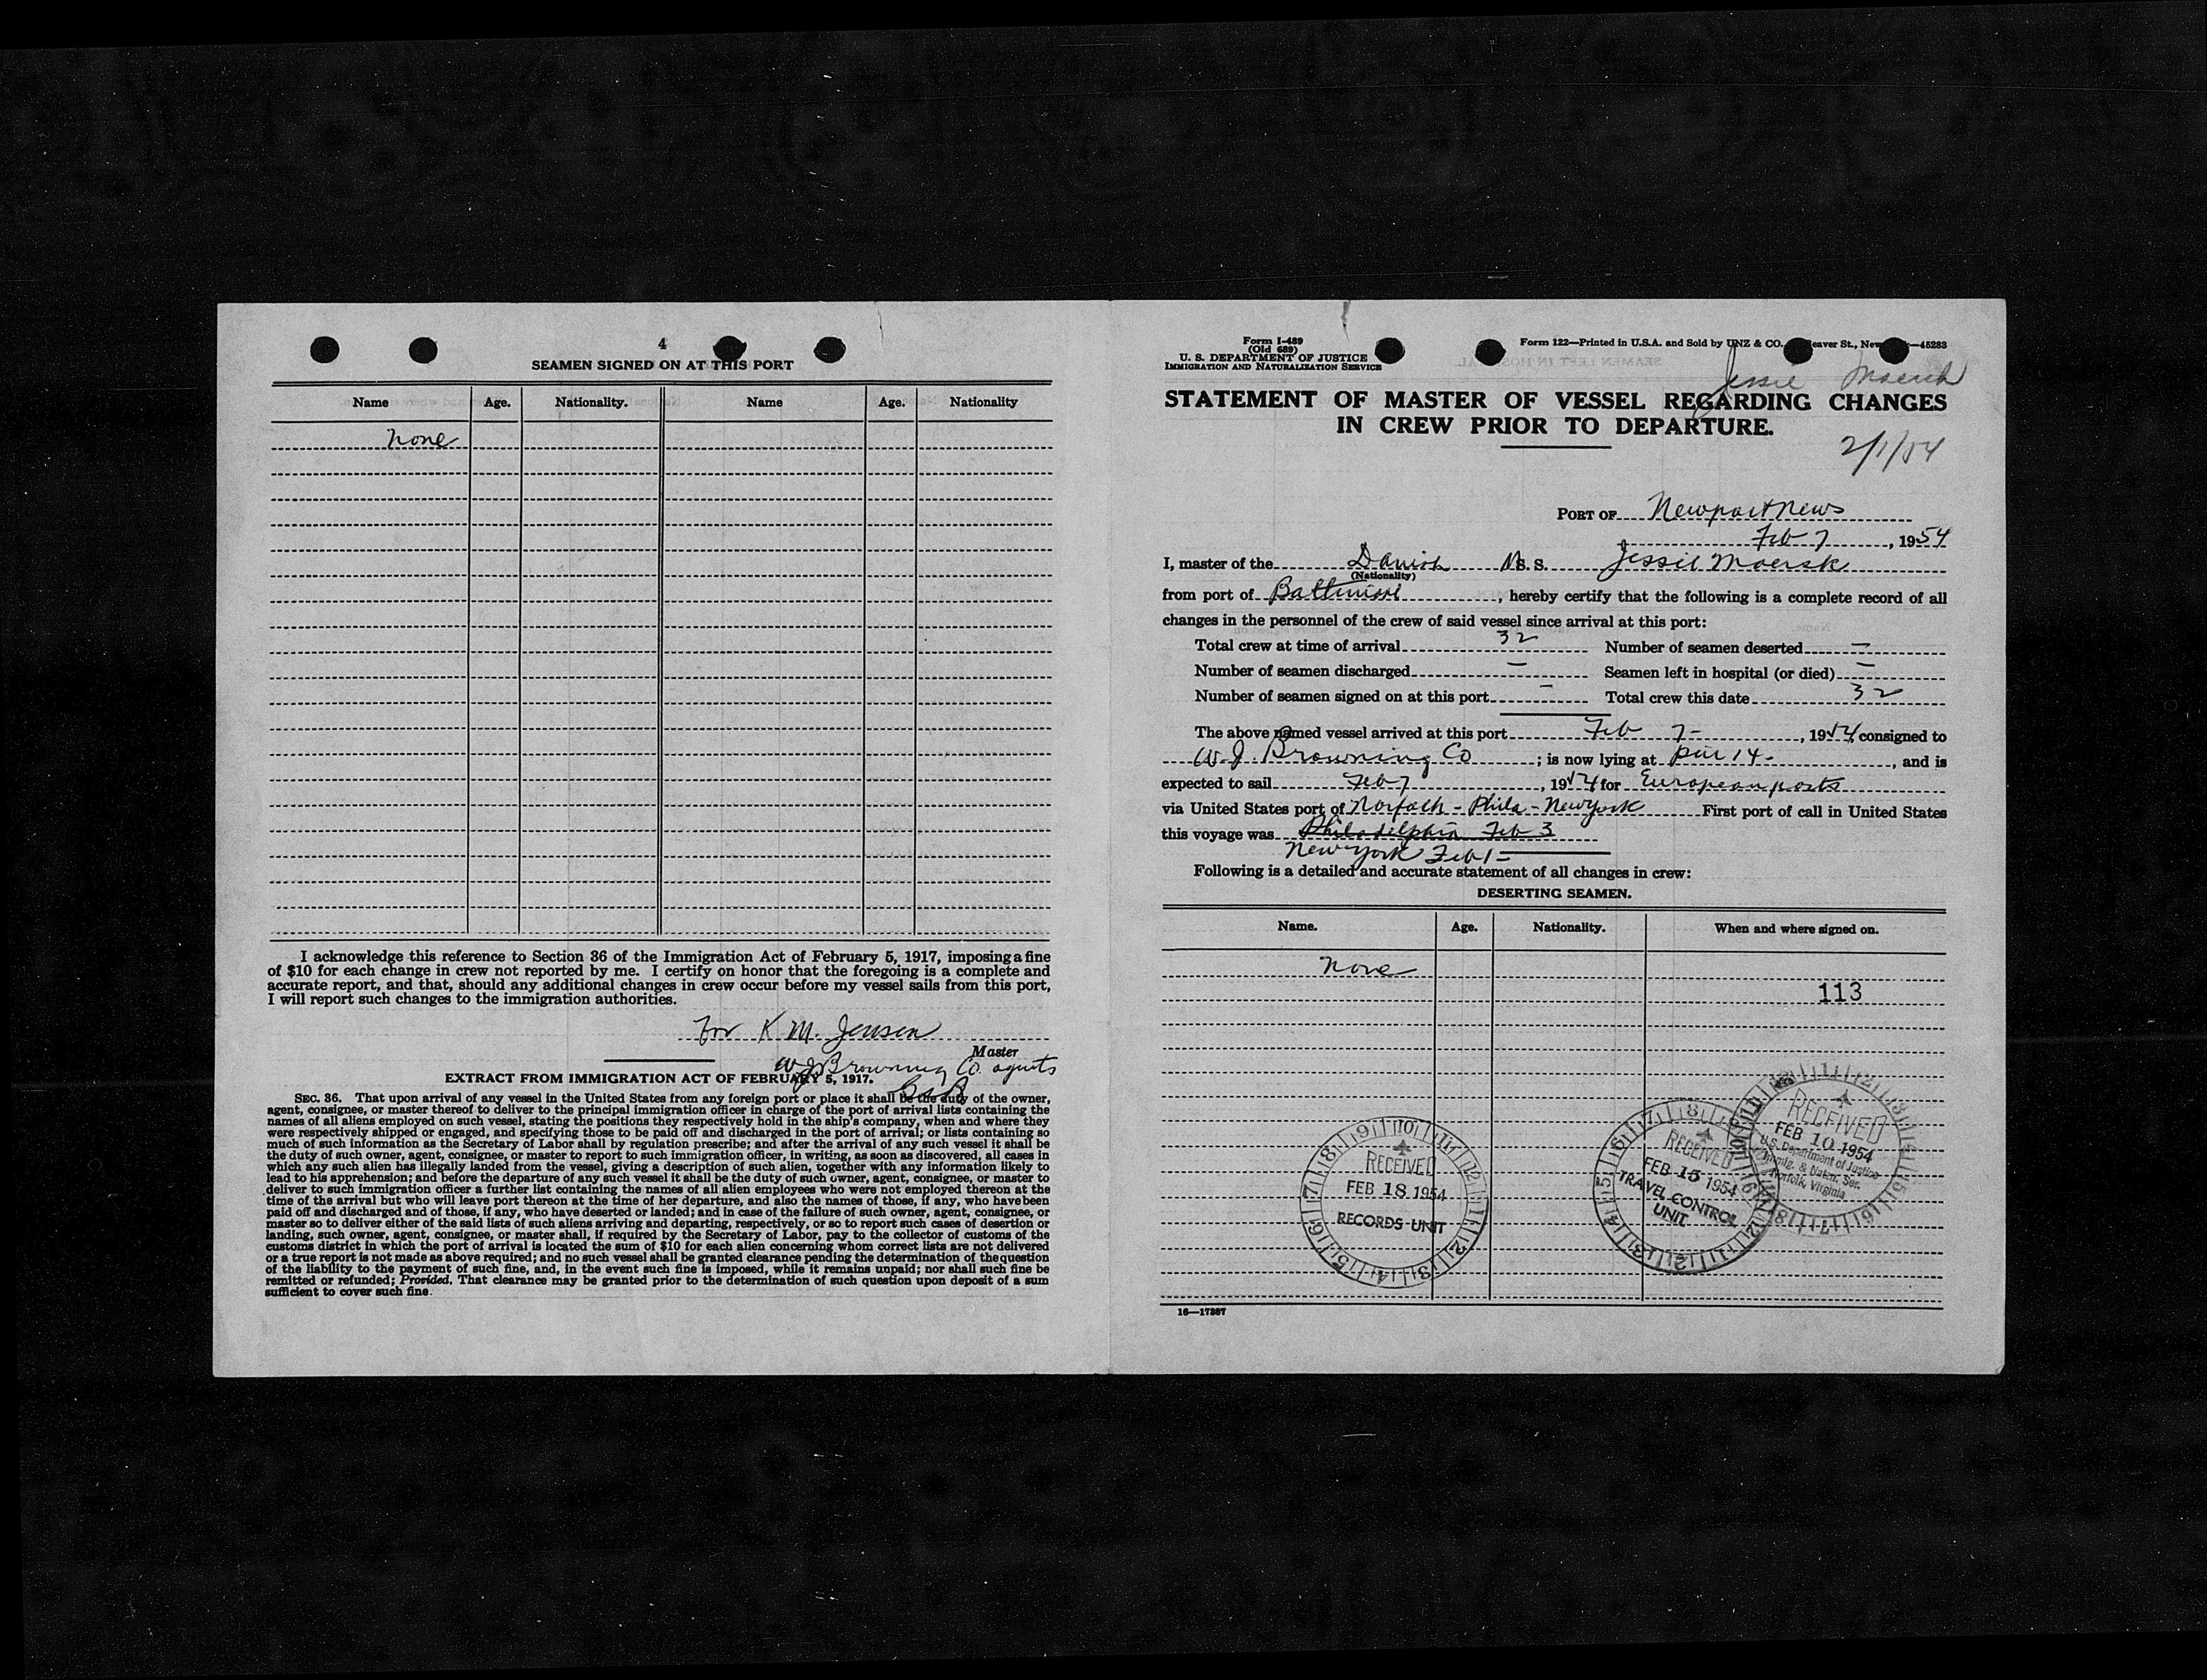 4
SEAMEN SIGNED ON AT THIS PORT
Name Age. Nationality. Name Age. Nationality
none
I acknowledge this reference to Section 36 of the Immigration Act of February 5, 1917, imposing a fine
of $10 for each change in crew not reported by me. I certify on honor that the foregoing is a complete and
accurate report, and that, should any additional changes in crew occur before my vessel sails from this port,
I will report such changes to the immigration authorities.
For K. M. Jensen
Master
W J Browning Co. agents
EXTRACT FROM IMMIGRATION ACT OF FEBRUARY 5, 1917.
SEC. 36. That upon arrival of any vessel in the United States from any foreign port or place it shall be the duty of the owner,
agent, consignee, or master thereof to deliver to the principal immigration officer in charge of the port of arrival lists containing the
names of all aliens employed on such vessel, stating the positions they respectively hold in the ship's company, when and where they
were respectively shipped or engaged, and specifying those to be paid off and discharged in the port of arrival; or lists containing so
much of such information as the Secretary of Labor shall by regulation prescribe; and after the arrival of any such vessel it shall be
the duty of such owner, agent, consignee, or master to report to such immigration officer, in writing, as soon as discovered, all cases in
which any such alien has illegally landed from the vessel, giving a description of such alien, together with any information likely to
lead to his apprehension; and before the departure of any such vessel it shall be the duty of such owner, agent, consignee, or master to
deliver to such immigration officer a further list containing the names of all alien employees who were not employed thereon at the
time of the arrival but who will leave port thereon at the time of her departure, and also the names of those, if any, who have been
paid off and discharged and of those, if any, who have deserted or landed; and in case of the failure of such owner, agent, consignee, or
master so to deliver either of the said lists of such aliens arriving and departing, respectively, or so to report such cases of desertion or
landing, such owner, agent, consignee, or master shall, if required by the Secretary of Labor, pay to the collector of customs of the
customs district in which the port of arrival is located the sum of $10 for each alien concerning whom correct lists are not delivered
or a true report is not made as above required; and no such vessel shall be granted clearance pending the determination of the question
of the liability to the payment of such fine, and, in the event such fine is imposed, while it remains unpaid; nor shall such fine be
remitted or refunded; Provided, That clearance may be granted prior to the determination of such question upon deposit of a sum
sufficient to cover such fine.
Form I-489
(Old 689)
U. S. DEPARTMENT OF JUSTICE
IMMIGRATION AND NATURALIZATION SERVICE
Form 122—Printed in U.S.A. and Sold by UNZ & CO. eaver St., New —45283
Jessie Maersk
STATEMENT OF MASTER OF VESSEL REGARDING CHANGES
IN CREW PRIOR TO DEPARTURE.
2/1/54
PORT OF Newport News
Feb 7, 1954
I, master of the Danish M. S. Jessie Maersk
(Nationality)
from port of Baltimore, hereby certify that the following is a complete record of all
changes in the personnel of the crew of said vessel since arrival at this port:
Total crew at time of arrival 32 Number of seamen deserted —
Number of seamen discharged — Seamen left in hospital (or died) —
Number of seamen signed on at this port - Total crew this date 32
The above named vessel arrived at this port Feb 7-, 1954, consigned to
W. J. Browning Co; is now lying at pier 14-, and is
expected to sail Feb 7, 1954 for European ports
via United States port of Norfolk - Phila - New York First port of call in United States
this voyage was Philadelphia Feb 3
New York Feb 1-
Following is a detailed and accurate statement of all changes in crew:
DESERTING SEAMEN.
Name. Age. Nationality. When and where signed on.
none
113
RECEIVED
FEB 10 1954
U.S. Department of Justice
Immig. & Natzn. Ser.
Norfolk, Virginia
RECEIVED
FEB 15 1954
TRAVEL CONTROL
UNIT
RECEIVED
FEB 18 1954
RECORDS UNIT
16—17387